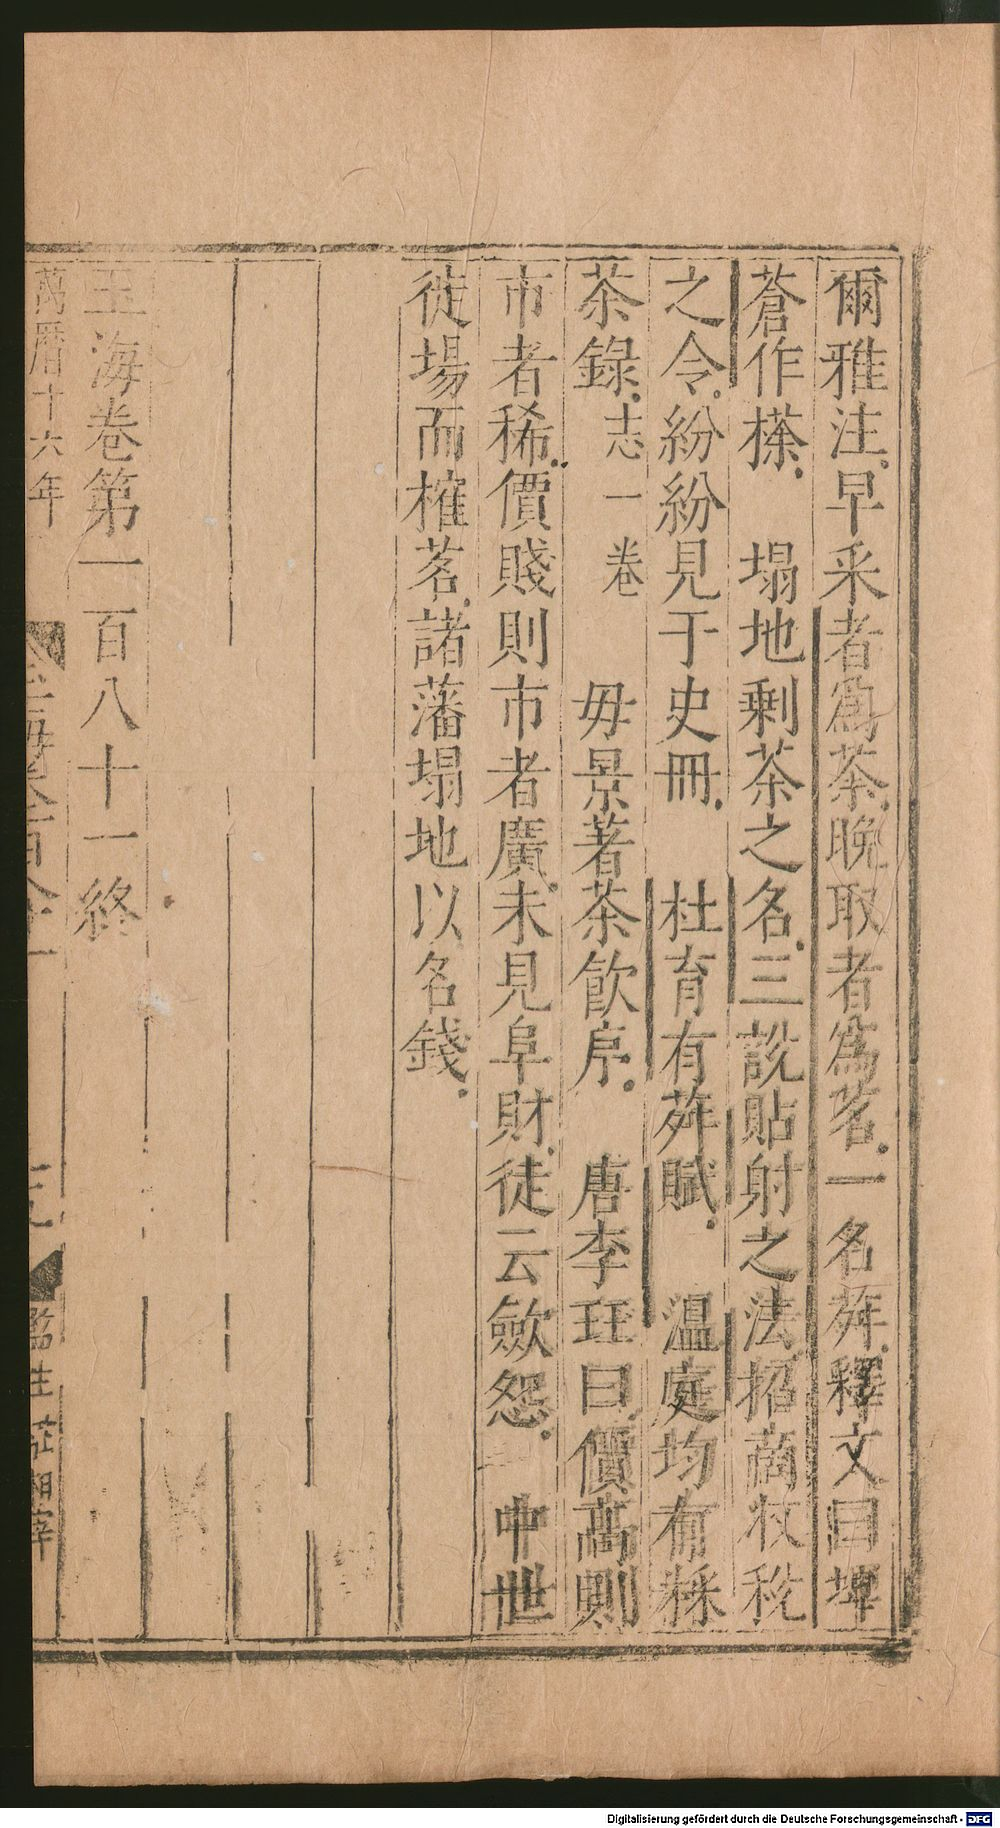 爾雅注早采者為茶晚取者為茗一名荈釋文曰埤
蒼作樣　塌地剩茶之名三說貼射之法招商收稅
之令紛紛見于史冊　杜育有荈賦　溫庭均有採
茶錄志一卷　毋景著茶飲序　唐李玨曰價高則
市者稀價賤則市者廣未見阜財徒云斂怨　中世
徙場而榷茗諸藩塌地以名錢
玉海卷第一百八十一終
萬曆十六年
監生
Digitalisierung gefördert durch die Deutsche Forschungsgemeinschaft - DFG